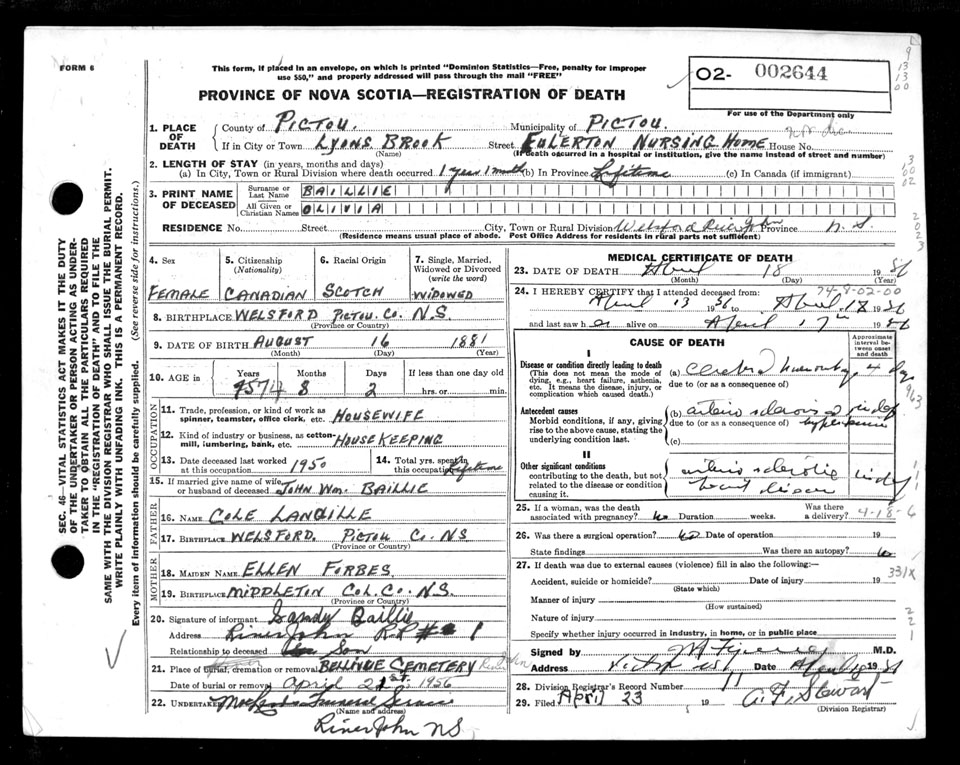 FORM 6
This form, if placed in an envelope, on which is printed "Dominion Statistics—Free, penalty for improper
use $50," and properly addressed will pass through the mail "FREE"
02- 002644
For use of the Department only
PROVINCE OF NOVA SCOTIA—REGISTRATION OF DEATH
1. PLACE OF DEATH
County of PICTOU. Municipality of PICTOU.
If in City or Town LYONS BROOK Street FULERTON NURSING HOME House No.
(Name) (If death occurred in a hospital or institution, give the name instead of street and number)
2. LENGTH OF STAY (in years, months and days)
(a) In City, Town or Rural Division where death occurred 1 year 1 month (b) In Province Lifetime (c) In Canada (if immigrant)
3. PRINT NAME OF DECEASED
Surname or Last Name BAILLIE
All Given or Christian Names OLIVIA
RESIDENCE No. Street City, Town or Rural Division Welsford River John Province N.S.
(Residence means usual place of abode. Post Office Address for residents in rural parts not sufficient)
4. Sex FEMALE
5. Citizenship (Nationality) CANADIAN
6. Racial Origin SCOTCH
7. Single, Married, Widowed or Divorced (write the word) WIDOWED
8. BIRTHPLACE WELSFORD PICTOU CO. N.S.
(Province or Country)
9. DATE OF BIRTH AUGUST 16 1881
(Month) (Day) (Year)
10. AGE in Years 74 Months 8 Days 2 If less than one day old hrs. or min.
OCCUPATION
11. Trade, profession, or kind of work as spinner, teamster, office clerk, etc. HOUSEWIFE
12. Kind of industry or business, as cotton-mill, lumbering, bank, etc. HOUSEKEEPING
13. Date deceased last worked at this occupation 1950
14. Total yrs. spent in this occupation Lifetime
15. If married give name of wife or husband of deceased JOHN WM. BAILLIE
FATHER
16. Name COLE LANGILLE
17. Birthplace WELSFORD. PICTOU CO. NS
(Province or Country)
MOTHER
18. Maiden Name ELLEN FORBES
19. Birthplace MIDDLETON COL. CO. N.S.
(Province or Country)
20. Signature of informant Sandy Baillie
Address River John R.R # 1
Relationship to deceased Son
21. Place of burial, cremation or removal BELLVUE CEMETERY
Date of burial or removal April 21st. 1956
22. UNDERTAKER Funeral Service
(Name and address)
River John NS
MEDICAL CERTIFICATE OF DEATH
23. DATE OF DEATH April 18 1956
(Month) (Day) (Year)
74-8-02-00
24. I HEREBY CERTIFY that I attended deceased from:
April 13 1956 to April 18 1956
and last saw her alive on April 17th 1956
CAUSE OF DEATH
Approximate interval between onset and death
I
Disease or condition directly leading to death
(This does not mean the mode of dying, e.g., heart failure, asthenia, etc. It means the disease, injury, or complication which caused death.)
(a) cerebral hemorrhage 4 days
due to (or as a consequence of)
Antecedent causes
Morbid conditions, if any, giving rise to the above cause, stating the underlying condition last.
(b) arterio sclerosis
due to (or as a consequence of)
(c)
II
Other significant conditions contributing to the death, but not related to the disease or condition causing it.
arterio sclerotic
heart disease
25. If a woman, was the death associated with pregnancy? no Duration weeks. Was there a delivery?
4-18-6
26. Was there a surgical operation? no Date of operation 19
State findings Was there an autopsy? no
27. If death was due to external causes (violence) fill in also the following:—
331X
Accident, suicide or homicide? Date of injury 19
(State which)
Manner of injury
(How sustained)
Nature of injury
Specify whether injury occurred in industry, in home, or in public place
Signed by M.D.
Address Date
28. Division Registrar's Record Number 11
29. Filed April 23 19 A. F. Stewart
(Division Registrar)
SEC. 46—VITAL STATISTICS ACT MAKES IT THE DUTY
OF THE UNDERTAKER OR PERSON ACTING AS UNDER-
TAKER TO OBTAIN ALL THE PARTICULARS REQUIRED
IN THE "REGISTRATION OF DEATH" AND TO FILE THE
SAME WITH THE DIVISION REGISTRAR WHO SHALL ISSUE THE BURIAL PERMIT.
WRITE PLAINLY WITH UNFADING INK. THIS IS A PERMANENT RECORD.
Every item of information should be carefully supplied. (See reverse side for instructions.)